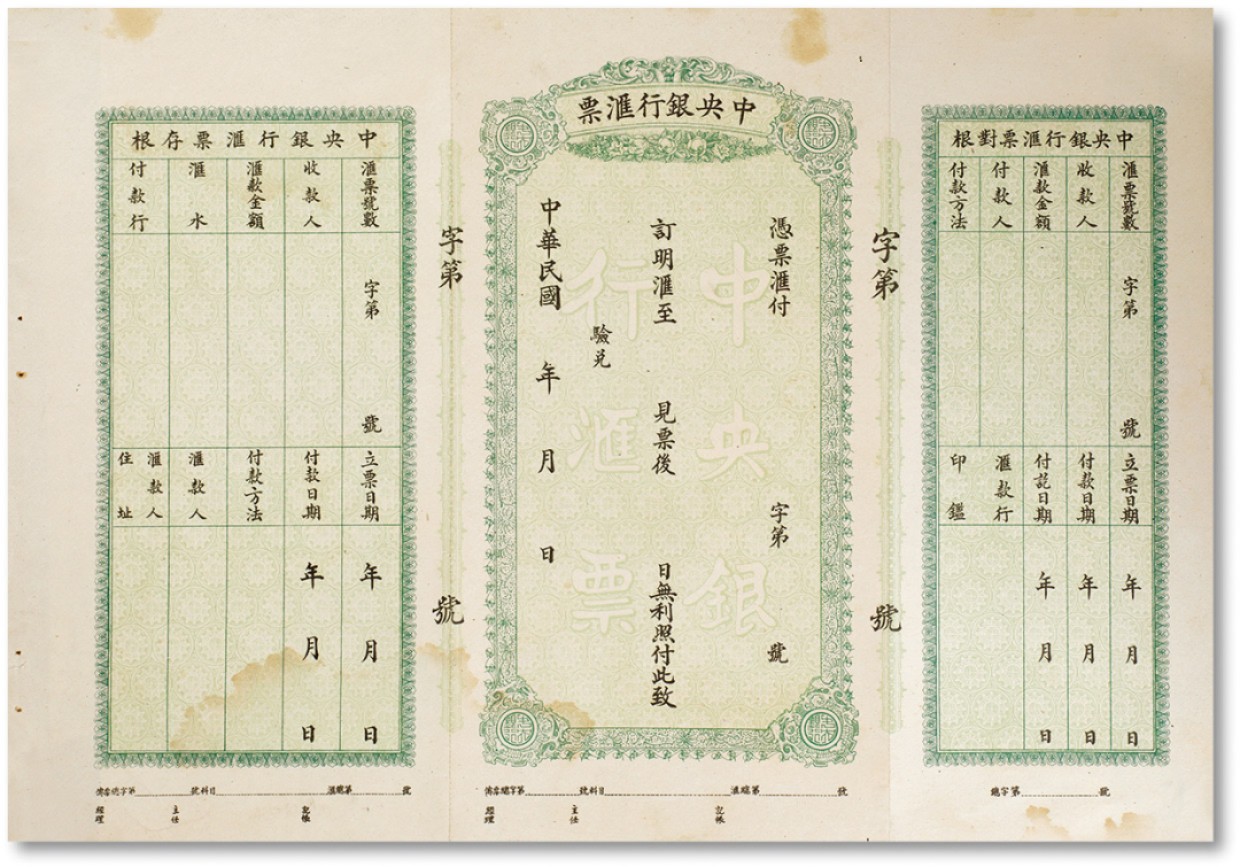 中央銀行滙票對根
滙票號數
字第 號
收款人
滙款金額
付款人
付款方法
立票日期
年 月 日
付款日期
年 月 日
付訖日期
年 月 日
滙款行
印鑑
總字第 號
字第 號
中央銀行滙票
憑票滙付 字第 號
訂明滙至 見票後 日無利照付此致
驗兌
中華民國 年 月 日
中央銀
行滙票
總字第 號科目 滙總第 號
經理 主任 記帳
字第 號
中央銀行滙票存根
滙票號數
字第 號
收款人
滙款金額
滙水
付款行
立票日期
年 月 日
付款日期
年 月 日
付款方法
滙款人
滙款人
住址
總字第 號科目 滙總第 號
經理 主任 記帳